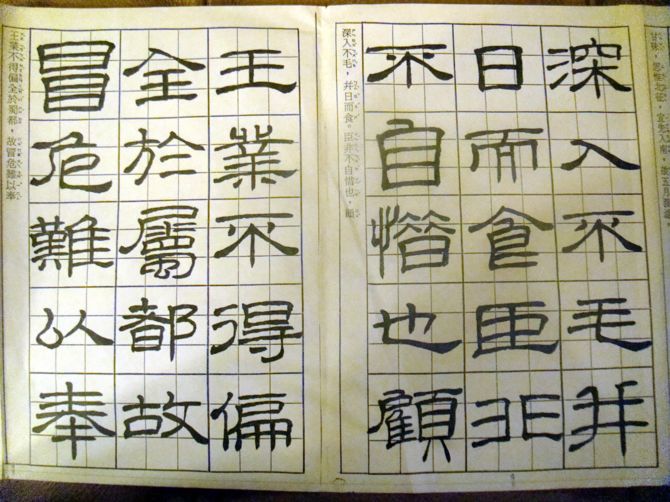 甘味，
深入不毛并
日而食臣非
不自惜也顧
深入不毛，并日而食。臣非不自惜也，顧
王業不得偏
全於屬都故
冒危難以奉
王業不得偏全於蜀都，故冒危難以奉